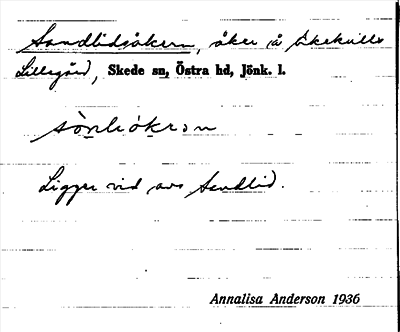 Sandlidsåkern, åker å Åkekulla
Lillegård, Skede sn, Östra hd, Jönk. l.
Ligger vid avs Sandlid.
Annalisa Anderson 1936